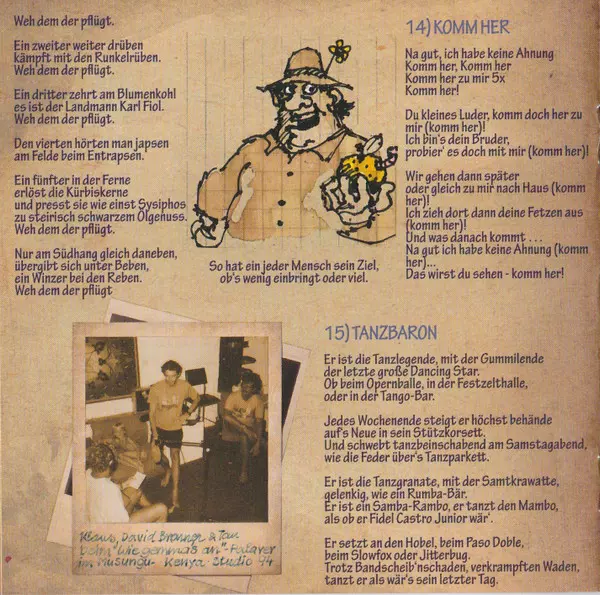 Weh dem der pflügt.
Ein zweiter weiter drüben
kämpft mit den Runkelrüben.
Weh dem der pflügt.
Ein dritter zehrt am Blumenkohl
es ist der Landmann Karl Fiol.
Weh dem der pflügt.
Den vierten hörten man japsen
am Felde beim Entrapsen.
Ein fünfter in der Ferne
erlöst die Kürbiskerne
und presst sie wie einst Sysiphos
zu steirisch schwarzem Ölgenuss.
Weh dem der pflügt.
Nur am Südhang gleich daneben,
übergibt sich unter Beben,
ein Winzer bei den Reben.
Weh dem der pflügt
So hat ein jeder Mensch sein Ziel,
ob's wenig einbringt oder viel.
14) KOMM HER
Na gut, ich habe keine Ahnung
Komm her, Komm her
Komm her zu mir 5x
Komm her!
Du kleines Luder, komm doch her zu
mir (komm her)!
Ich bin's dein Bruder,
probier' es doch mit mir (komm her)!
Wir gehen dann später
oder gleich zu mir nach Haus (komm
her)!
Ich zieh dort dann deine Fetzen aus
(komm her)!
Und was danach kommt . . .
Na gut ich habe keine Ahnung (komm
her)...
Das wirst du sehen - komm her!
15) TANZBARON
Er ist die Tanzlegende, mit der Gummilende
der letzte große Dancing Star.
Ob beim Opernballe, in der Festzelthalle,
oder in der Tango-Bar.
Jedes Wochenende steigt er höchst behände
auf's Neue in sein Stützkorsett.
Und schwebt tanzbeinschabend am Samstagabend,
wie die Feder über's Tanzparkett.
Er ist die Tanzgranate, mit der Samtkrawatte,
gelenkig, wie ein Rumba-Bär.
Er ist ein Samba-Rambo, er tanzt den Mambo,
als ob er Fidel Castro Junior wär'.
Er setzt an den Hobel, beim Paso Doble,
beim Slowfox oder Jitterbug.
Trotz Bandscheib'nschaden, verkrampften Waden,
tanzt er als wär's sein letzter Tag.
Klaus, David & Ian
beim "Wie gemma's an"-Palaver
im Musungu- Kenya Studio 94